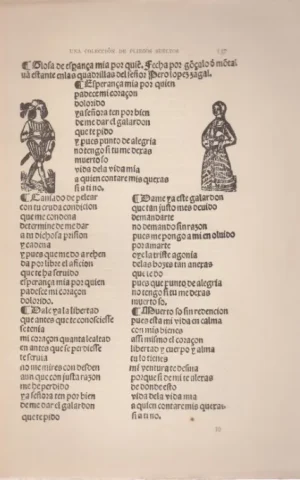 UNA COLECCIÓN DE PLIEGOS SUELTOS 137
¶ Glosa de esperança mia por quiẽ. Fecha por gõçalo õ mõtal
uã estante enlas quadrillas del señor Pero lopez zagal.
¶ Esperança mia por quien
padece mi coraçon
dolorido
ya señora ten por bien
de me dar el galardon
que te pido
y pues punto de alegria
no tengo si tu me dexas
muerto so
vida dela vida mia
a quien contare mis quexas
si a ti no.
¶ Cansado de pelear
con tu cruda condicion
que me condena
determine de me dar
a tu dichosa prission
y cadena
y pues que me do a rehen
da por libre el aficion
que te ha seruido
esperança mia por quien
padesce mi coraçon
dolorido.
¶ Dale ya la libertad
que antes que te conosciesse
se tenia
mi coraçon quanta lealtad
en antes que se perdiesse
te seruia
no me mires con desden
aun que con justa razon
me de perdido
ya señora ten por bien
de me dar el galardon
que te pido
¶ Dame ya este galardon
que tan justo mes deuido
demandarte
no demando sin razon
pues me pongo a mi en oluido
por amarte
oye la triste agonia
delas boxas tan anexas
que te do
pues que punto de alegria
no tengo si tu me dexas
muerto so.
¶ Muerto so sin redencion
pues esta mi vida en calma
con mis bienes
assi mismo el coraçon
libertad y cuerpo y alma
tu lo tienes
mi ventura te desuia
porque si de mi te alexas
de donde esto
vida dela vida mia
a quien contare mis quexas
si a ti no.